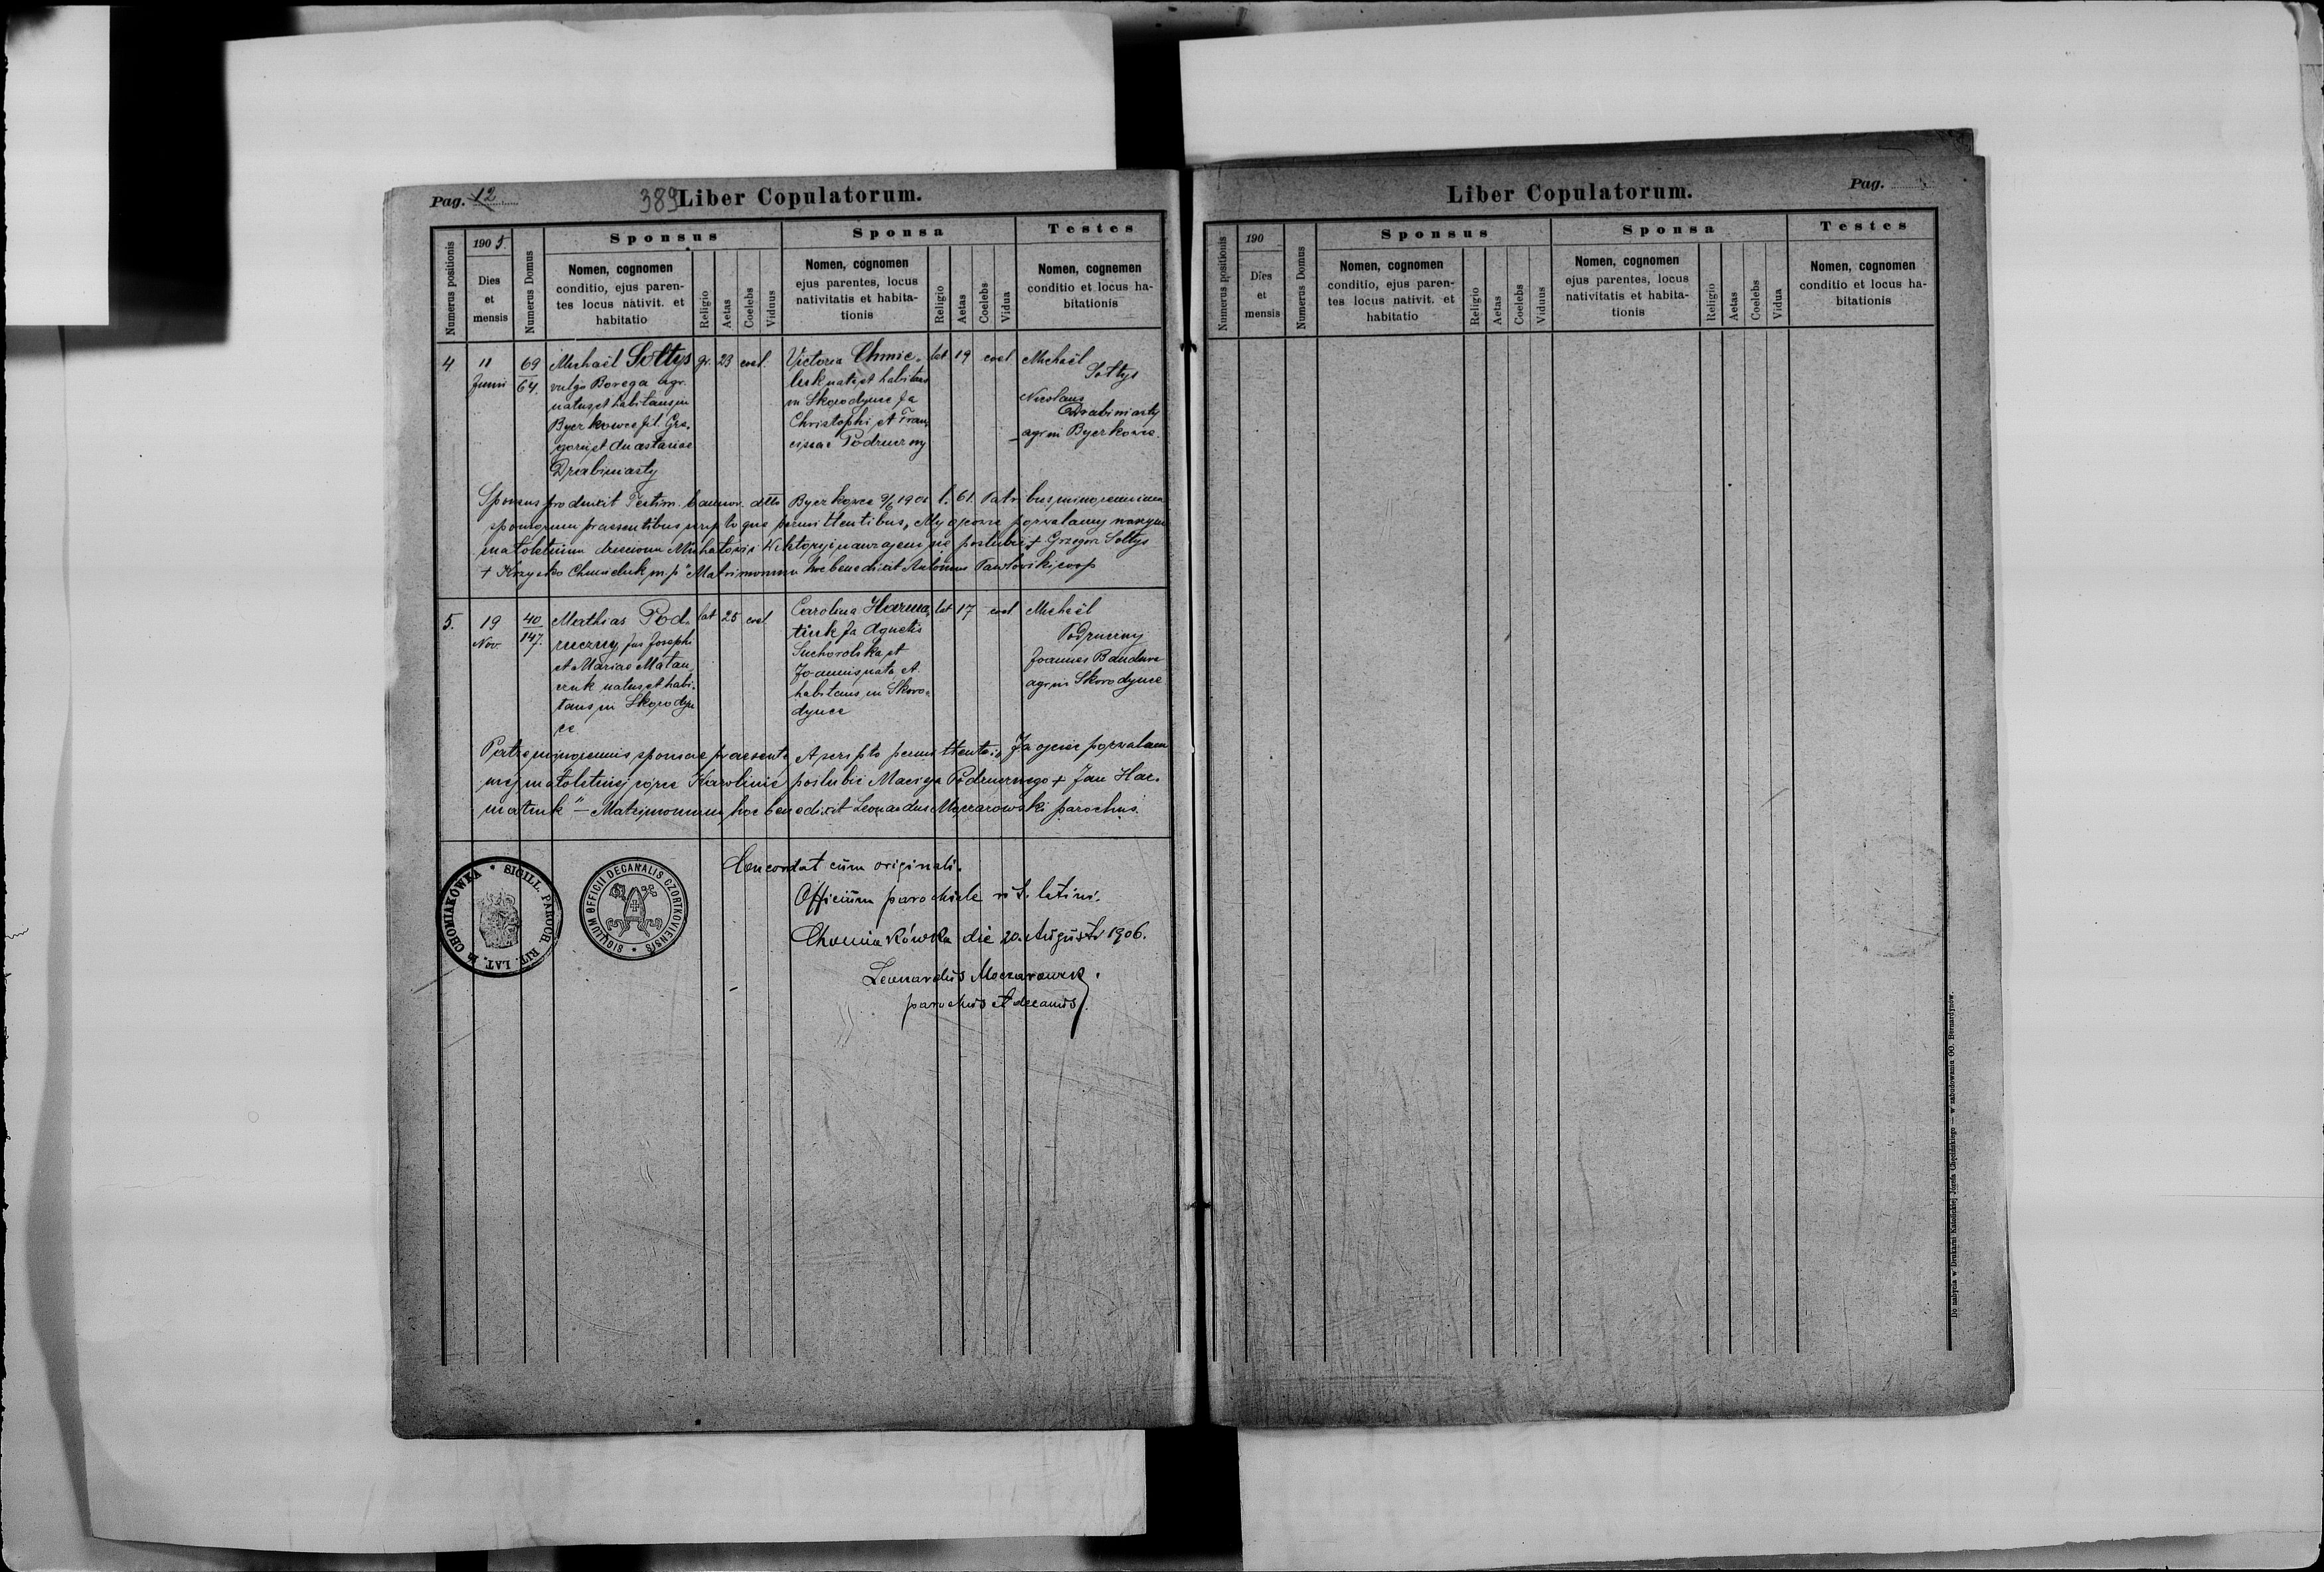 Pag. 12
389
Liber Copulatorum.
Numerus positionis
1905.
Dies
et
mensis
Numerus Domus
Sponsus
Nomen, cognomen
conditio, ejus paren-
tes locus nativit. et
habitatio
Religio
Aetas
Coelebs
Viduus
Sponsa
Nomen, cognomen
ejus parentes, locus
nativitatis et habita-
tionis
Religio
Aetas
Coelebs
Vidua
Testes
Nomen, cognemen
conditio et locus ha-
bitationis
4
11
Junii
69
64.
Michaël Sołtys
vulgo Borega agr.
natus et habitans in
Byczkowce fil. Gre-
gorii et Anastasiae
Drabiniasty
gr.
23
coel.
Victoria Chmie-
luk nata et habitans
in Skorodynce fa
Christophi et Fran
ciscae Podruczny
lat
19
coel
Michaël
Sołtys
Nicolaus
Drabiniasty
agr in Byczkowce.
Sponsus produxit Testim. bannor. dtto Byczkowce l. 61. Patribus minorennium
sponsorum praesentibus scriptoque permittentibus, My ojcowie pozwalamy naszym
małoletnim dzieciom Michałowi i Wiktoryi nawzajem się poślubić + Grzegorz Sołtys
+ Krzysko Chmieluk mp" Matrimonium hoc benedixit Antonius coop
5.
19
Nov.
40
147.
Mathias Pod-
ruczny fus Josephi
et Mariae Matau
czuk natus et habi-
tans in Skorodyn
ce
lat
25
coel
Carolina Harma-
tiuk fa Agnetis
Suchorolska et
Joannis nata et
habitans in Skoro-
dynce
lat
17
coel
Michaël
Podruczny
Joannes Bandura
agr in Skorodynce
Patre minorennis sponsae praesente et scripto permittente: Ja ojciec pozwalam
mej małoletniej córce Karolinie poślubić Macieja Podrucznego + Jan Har-
matiuk" — Matrimonium hoc benedixit Leonardus Moczarowski parochus.
SIGILL. PAROCH. RIT. LAT. in CHOMIAKÓWKA
SIGILLUM OFFICII DECANALIS CZORTKOVIENSIS
Concordat cum originali.
Officium parochiale rit. latini.
Chomiakówka die 20. Augusti 1906.
Leonardus Moczarowski
parochus et decanus.
Liber Copulatorum.
Pag.
Numerus positionis
190
Dies
et
mensis
Numerus Domus
Sponsus
Nomen, cognomen
conditio, ejus paren-
tes locus nativit. et
habitatio
Religio
Aetas
Coelebs
Viduus
Sponsa
Nomen, cognomen
ejus parentes, locus
nativitatis et habita-
tionis
Religio
Aetas
Coelebs
Vidua
Testes
Nomen, cognomen
conditio et locus ha-
bitationis
Do nabycia w Drukarni Katolickiej Józefa Chęcińskiego — w zabudowaniu OO. Bernardynów.